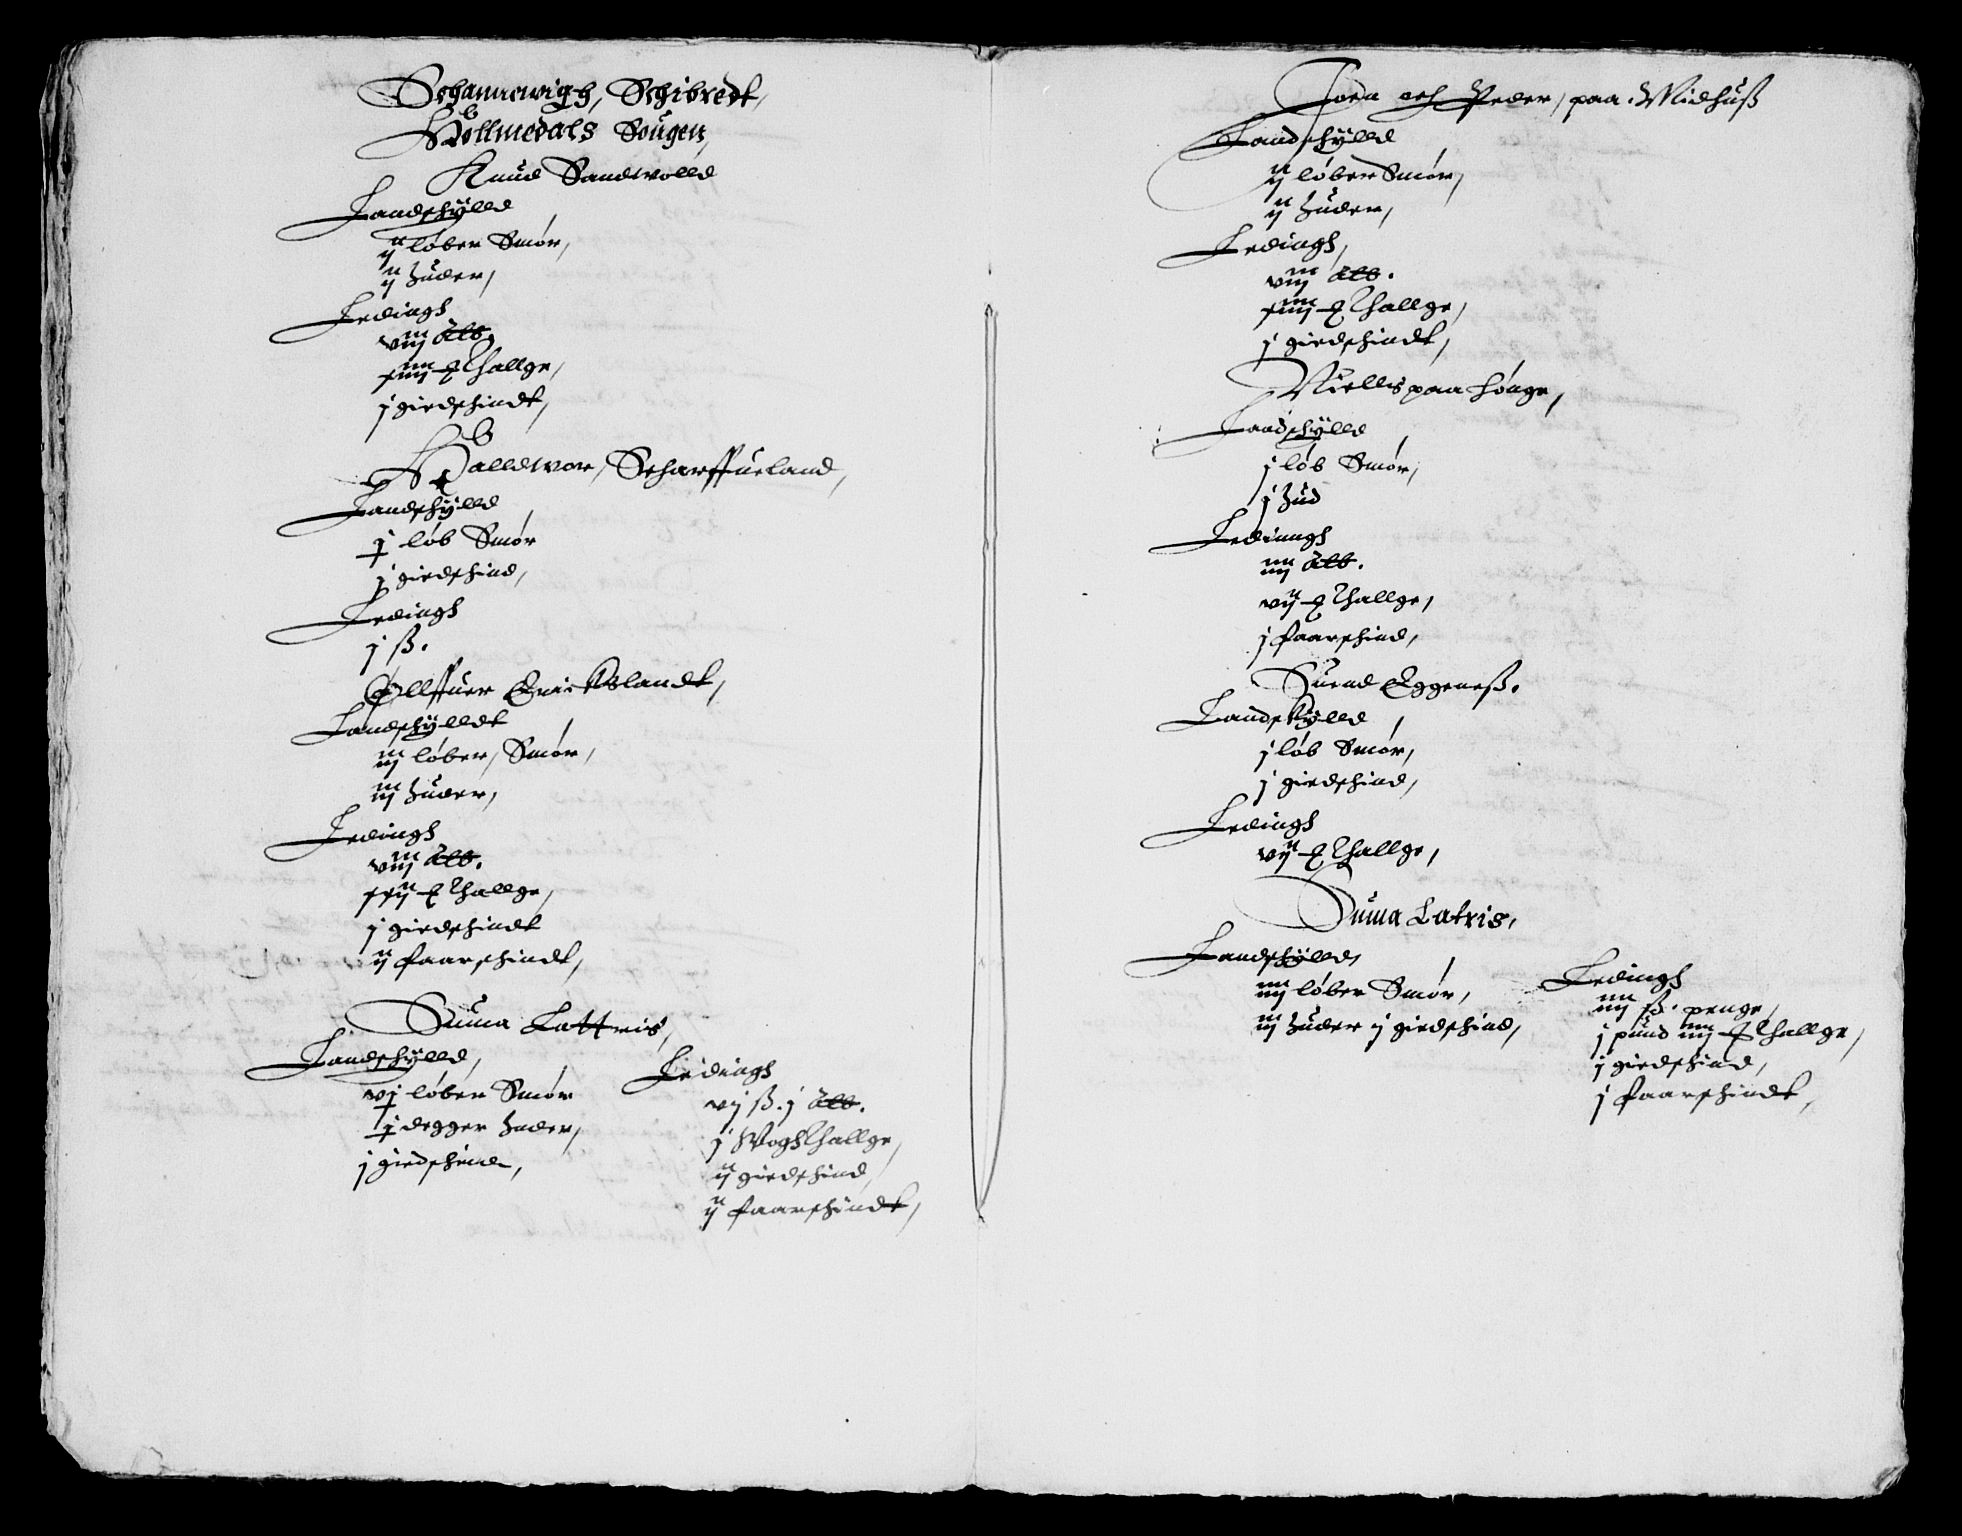 Schannewigh, Schibredt,
Hollmedals Sougen,
Knud Sandwolld
Landschÿlld
ij løber Smør,
ij huder,
Ledingh
viij alb.
xiiij £ thallge,
j giedschindt,
Halldwor, Scharffueland,
Landschÿlld
j løb Smør
j giedschind,
Ledingh
j ß.
Ollffuer Erickslandt,
Landschÿlldt
iij løber, Smør,
iij huder,
Ledingh
viij alb.
xxij £ thallge,
j giedschindt
ij faarschindt,
Suma Lattris,
Landschÿlld,
vj løber Smør
j degger huder,
j giedschind,
Ledingh
vij ß. j alb.
j Wogh thallge,
ij giedschind,
ij faarschindt,
Joen och Peder, paa Midhuß
Landschÿlld
ij løber Smør,
ij huder,
Ledingh,
viij alb.
xiiij £ thallge,
j giedschindt,
Niells paa Høuge,
Landschÿlld
j løb Smør,
j hud
Ledinngh
iiij alb.
vij £ thallge,
j faarschind,
Suend Eggeneß.
Landskÿlld
j løb Smør,
j giedschind,
Ledingh
vij £ thallge,
Suma Latris,
Landschÿlld,
iiij løber Smør,
iij huder j giedschind,
Ledingh
iiij ß. penge,
j pund iiij £ thallge,
j giedschind,
j faarschindt,